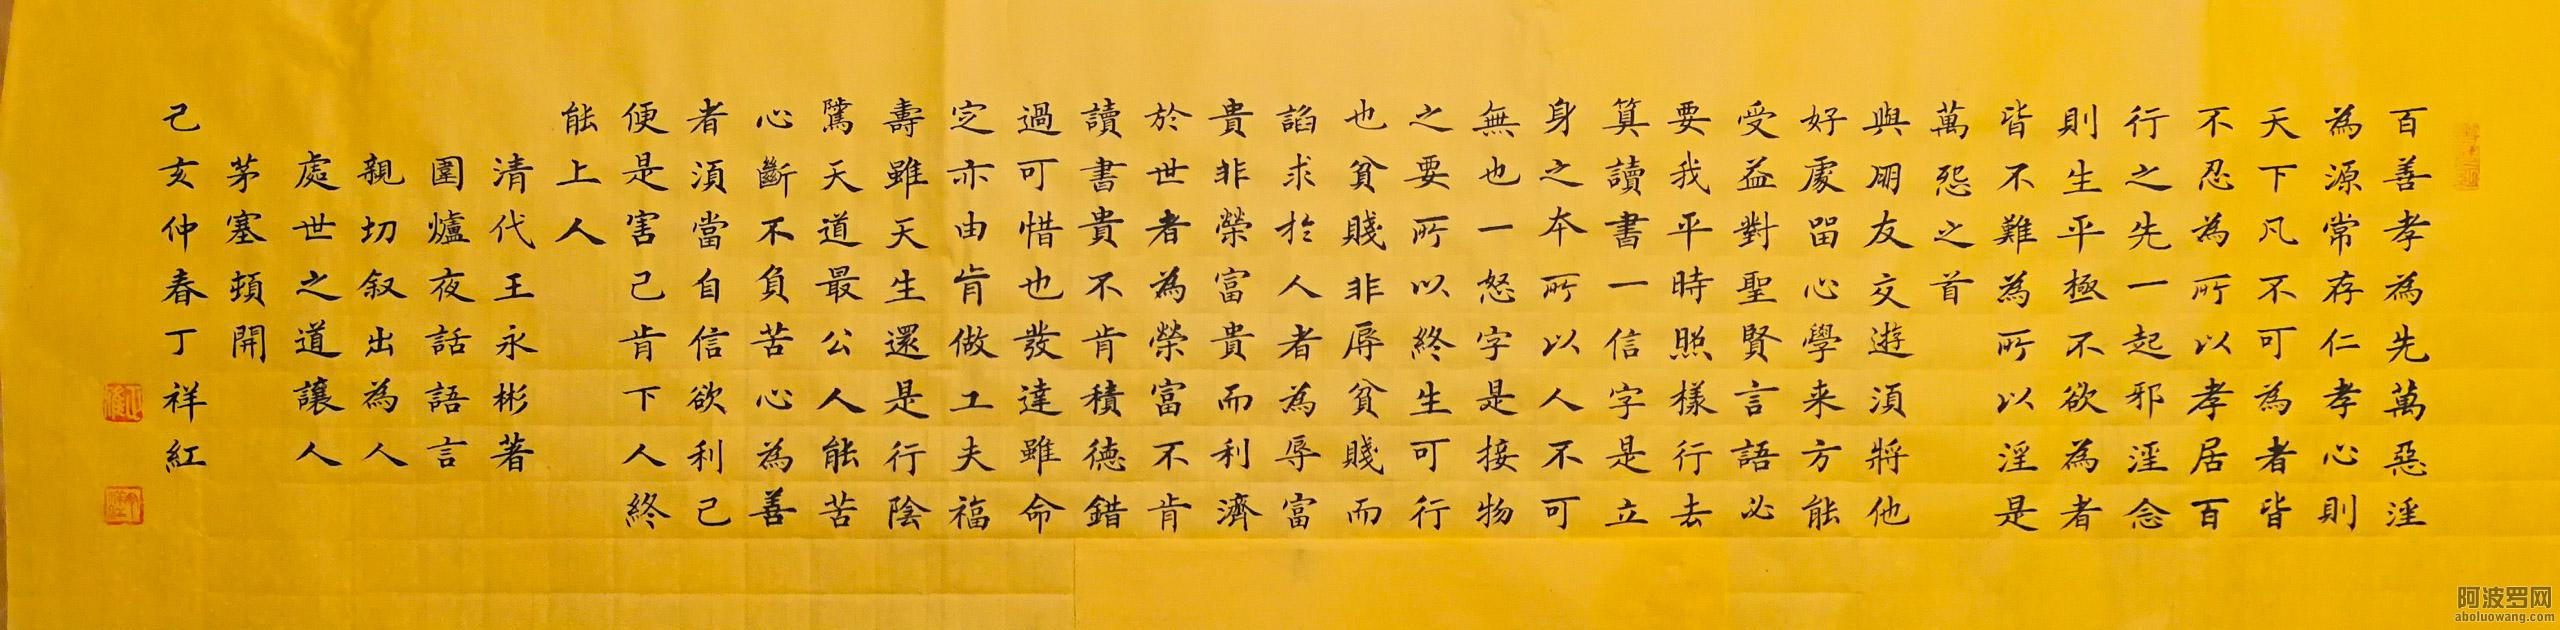 百善孝為先萬惡淫
為源常存仁孝心則
天下凡不可為者皆
不忍為所以孝居百
行之先一起邪淫念
則生平極不欲為者
皆不難為所以淫是
萬惡之首
與朋友交遊須將他
好處留心學来方能
受益對聖賢言語必
要我平時照樣行去
算讀書一信字是立
身之本所以人不可
無也一怒字是接物
之要所以終生可行
也貧賤非辱貧賤而
諂求於人者為辱富
貴非榮富貴而利濟
於世者為榮富不肯
讀書貴不肯積德錯
過可惜也發達雖命
定亦由肯做工夫福
壽雖天生還是行陰
騭天道最公人能苦
心斷不負苦心為善
者須當自信欲利己
便是害己肯下人終
能上人
清代王永彬著
圍爐夜話語言
親切叙出為人
處世之道讓人
茅塞頓開
己亥仲春丁祥紅
阿波罗网
aboluowang.com